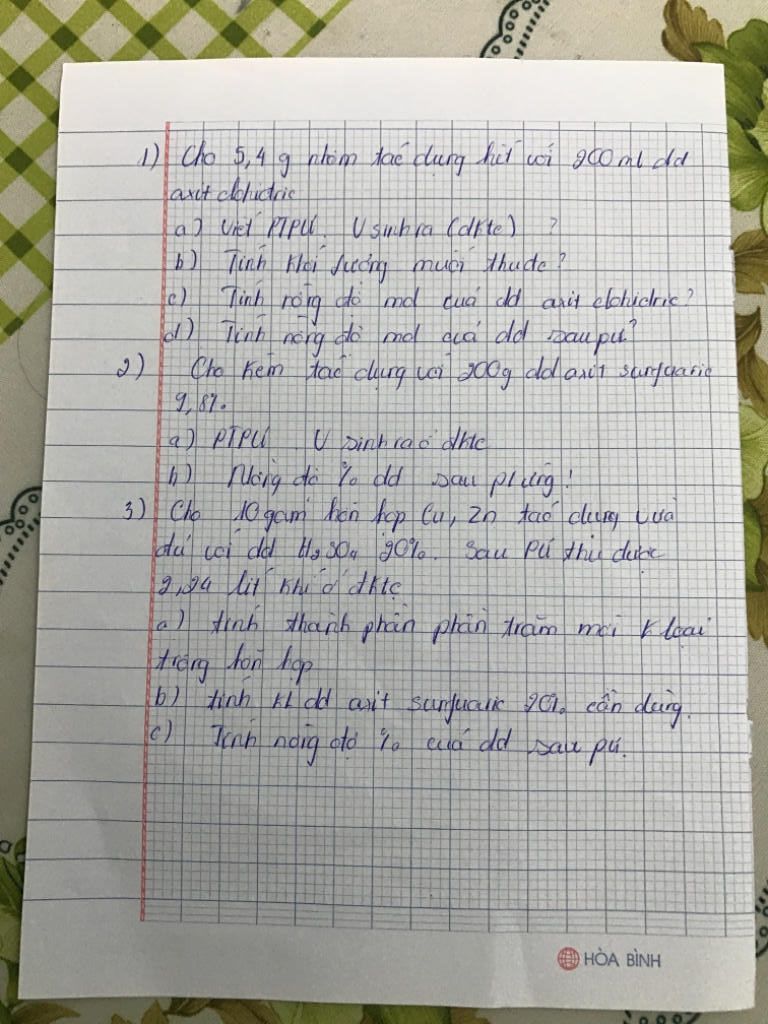 1) Cho 5,4 g nhôm tác dụng hết với 200 ml dd
axit clohidric
a) Viết PTPƯ. V sinh ra (đktc) ?
b) Tính khối lượng muối thu đc?
c) Tính nồng độ mol của dd axit clohidric?
d) Tính nồng độ mol của dd sau pư?
2) Cho kẽm tác dụng với 200g dd axit sunfuaric
9,8%.
a) PTPƯ V sinh ra ở đktc
b) Nồng độ % dd sau p/ứng!
3) Cho 10 gam hỗn hợp Cu, Zn tác dụng vừa
đủ với dd H2SO4 20%. Sau PƯ thu được
2,24 lít khí ở đktc
a) tính thành phần phần trăm mỗi k loại
trong hỗn hợp
b) tính kl dd axit sunfuaric 20% cần dùng.
c) Tính nồng độ % của dd sau pư.
HÒA BÌNH